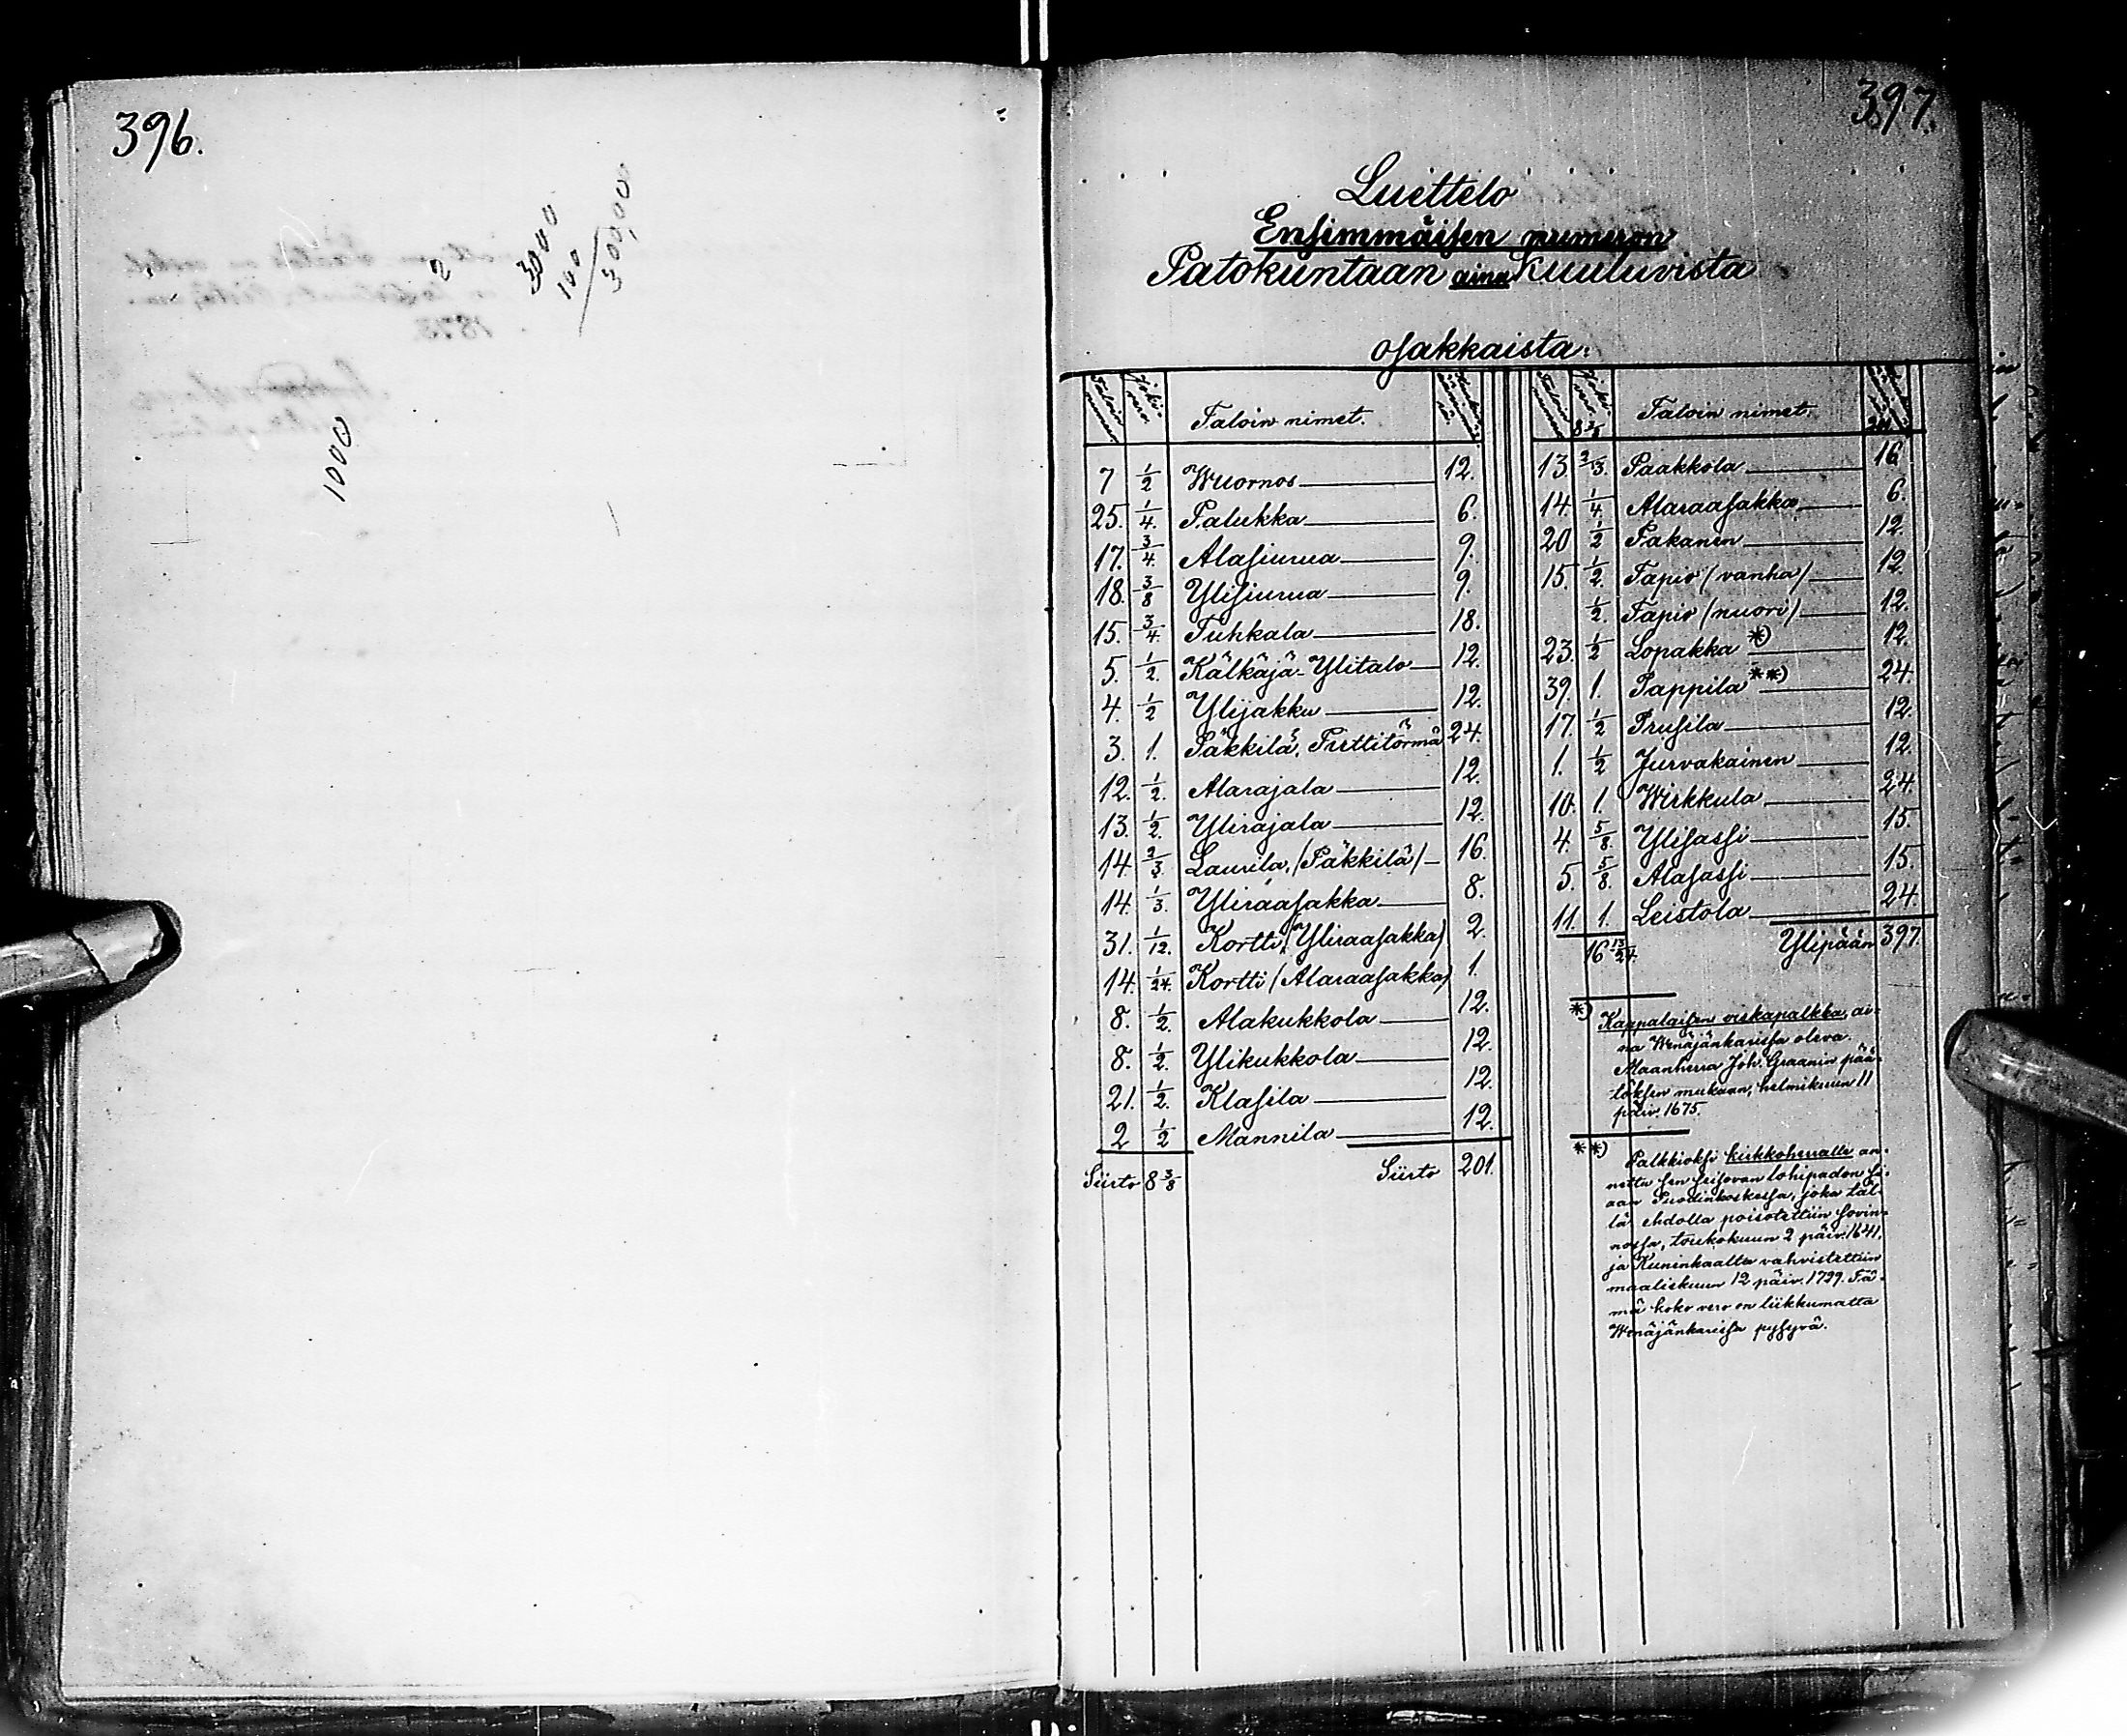 396.
3000
100
300,00
2
1000
397.
Luettelo
Ensimmäisen numeron
Patokuntaan aina Kuuluvista
osakkaista.
Taloin nimet.
7 1/2 Wuornos 12.
25. 1/4. Palukka 6.
17. 3/4. Alasiurua 9.
18. 3/8 Ylisiurua 9.
15. 3/4. Tuhkala 18.
5. 1/2. Kälkäjä-Ylitalo 12.
4. 1/2 Ylijakku 12.
3. 1. Päkkilä, Pirttitörmä 24.
12. 1/2. Alarajala 12.
13. 1/2. Ylirajala 12.
14 2/3. Laurila, (Päkkilä) 16.
14. 1/3. Yliraasakka 8.
31. 1/12. Kortti, (Yliraasakka) 2.
14. 1/24. Kortti (Alaraasakka) 1.
8. 1/2. Alakukkola 12.
8. 1/2. Ylikukkola 12.
21. 1/2. Klasila 12.
2 1/2 Mannila 12.
Siirto 8 3/8 Siirto 201.
Taloin nimet.
13 2/3. Paakkola 16
14. 1/4. Alaraasakka 6.
20 1/2 Pakanen 12.
15. 1/2. Tapio (vanha) 12.
1/2. Tapio (nuori) 12.
23. 1/2 Lopakka *) 12.
39. 1. Pappila **) 24.
17. 1/2 Prusila 12.
1. 1/2 Jurvakainen 12.
10. 1. Wirkkula 24.
4. 5/8. Ylisassi 15.
5. 5/8. Alasassi 15.
11. 1. Leistola 24.
16 13/24. Ylipään 397.
*) Kappalaisen virkapalkka, ai-
na Wenäjänkarissa oleva.
Maanherra Joh. Graanin pää-
töksen mukaan, helmikuun 11
päiv. 1675.
**) Palkkioksi kirkkoherralle an-
nettu sen seisovan lohipadon si-
aan Puodinkoskessa, joka täl-
lä ehdolla poisotettiin sovin-
nossa, toukokuun 2 päiv. 1641,
ja Kuninkaalta vahvistettiin
maaliskuun 12 päiv. 1799. Tä-
mä koko vero on liikkumatta
Wenäjänkarissa pysyvä.